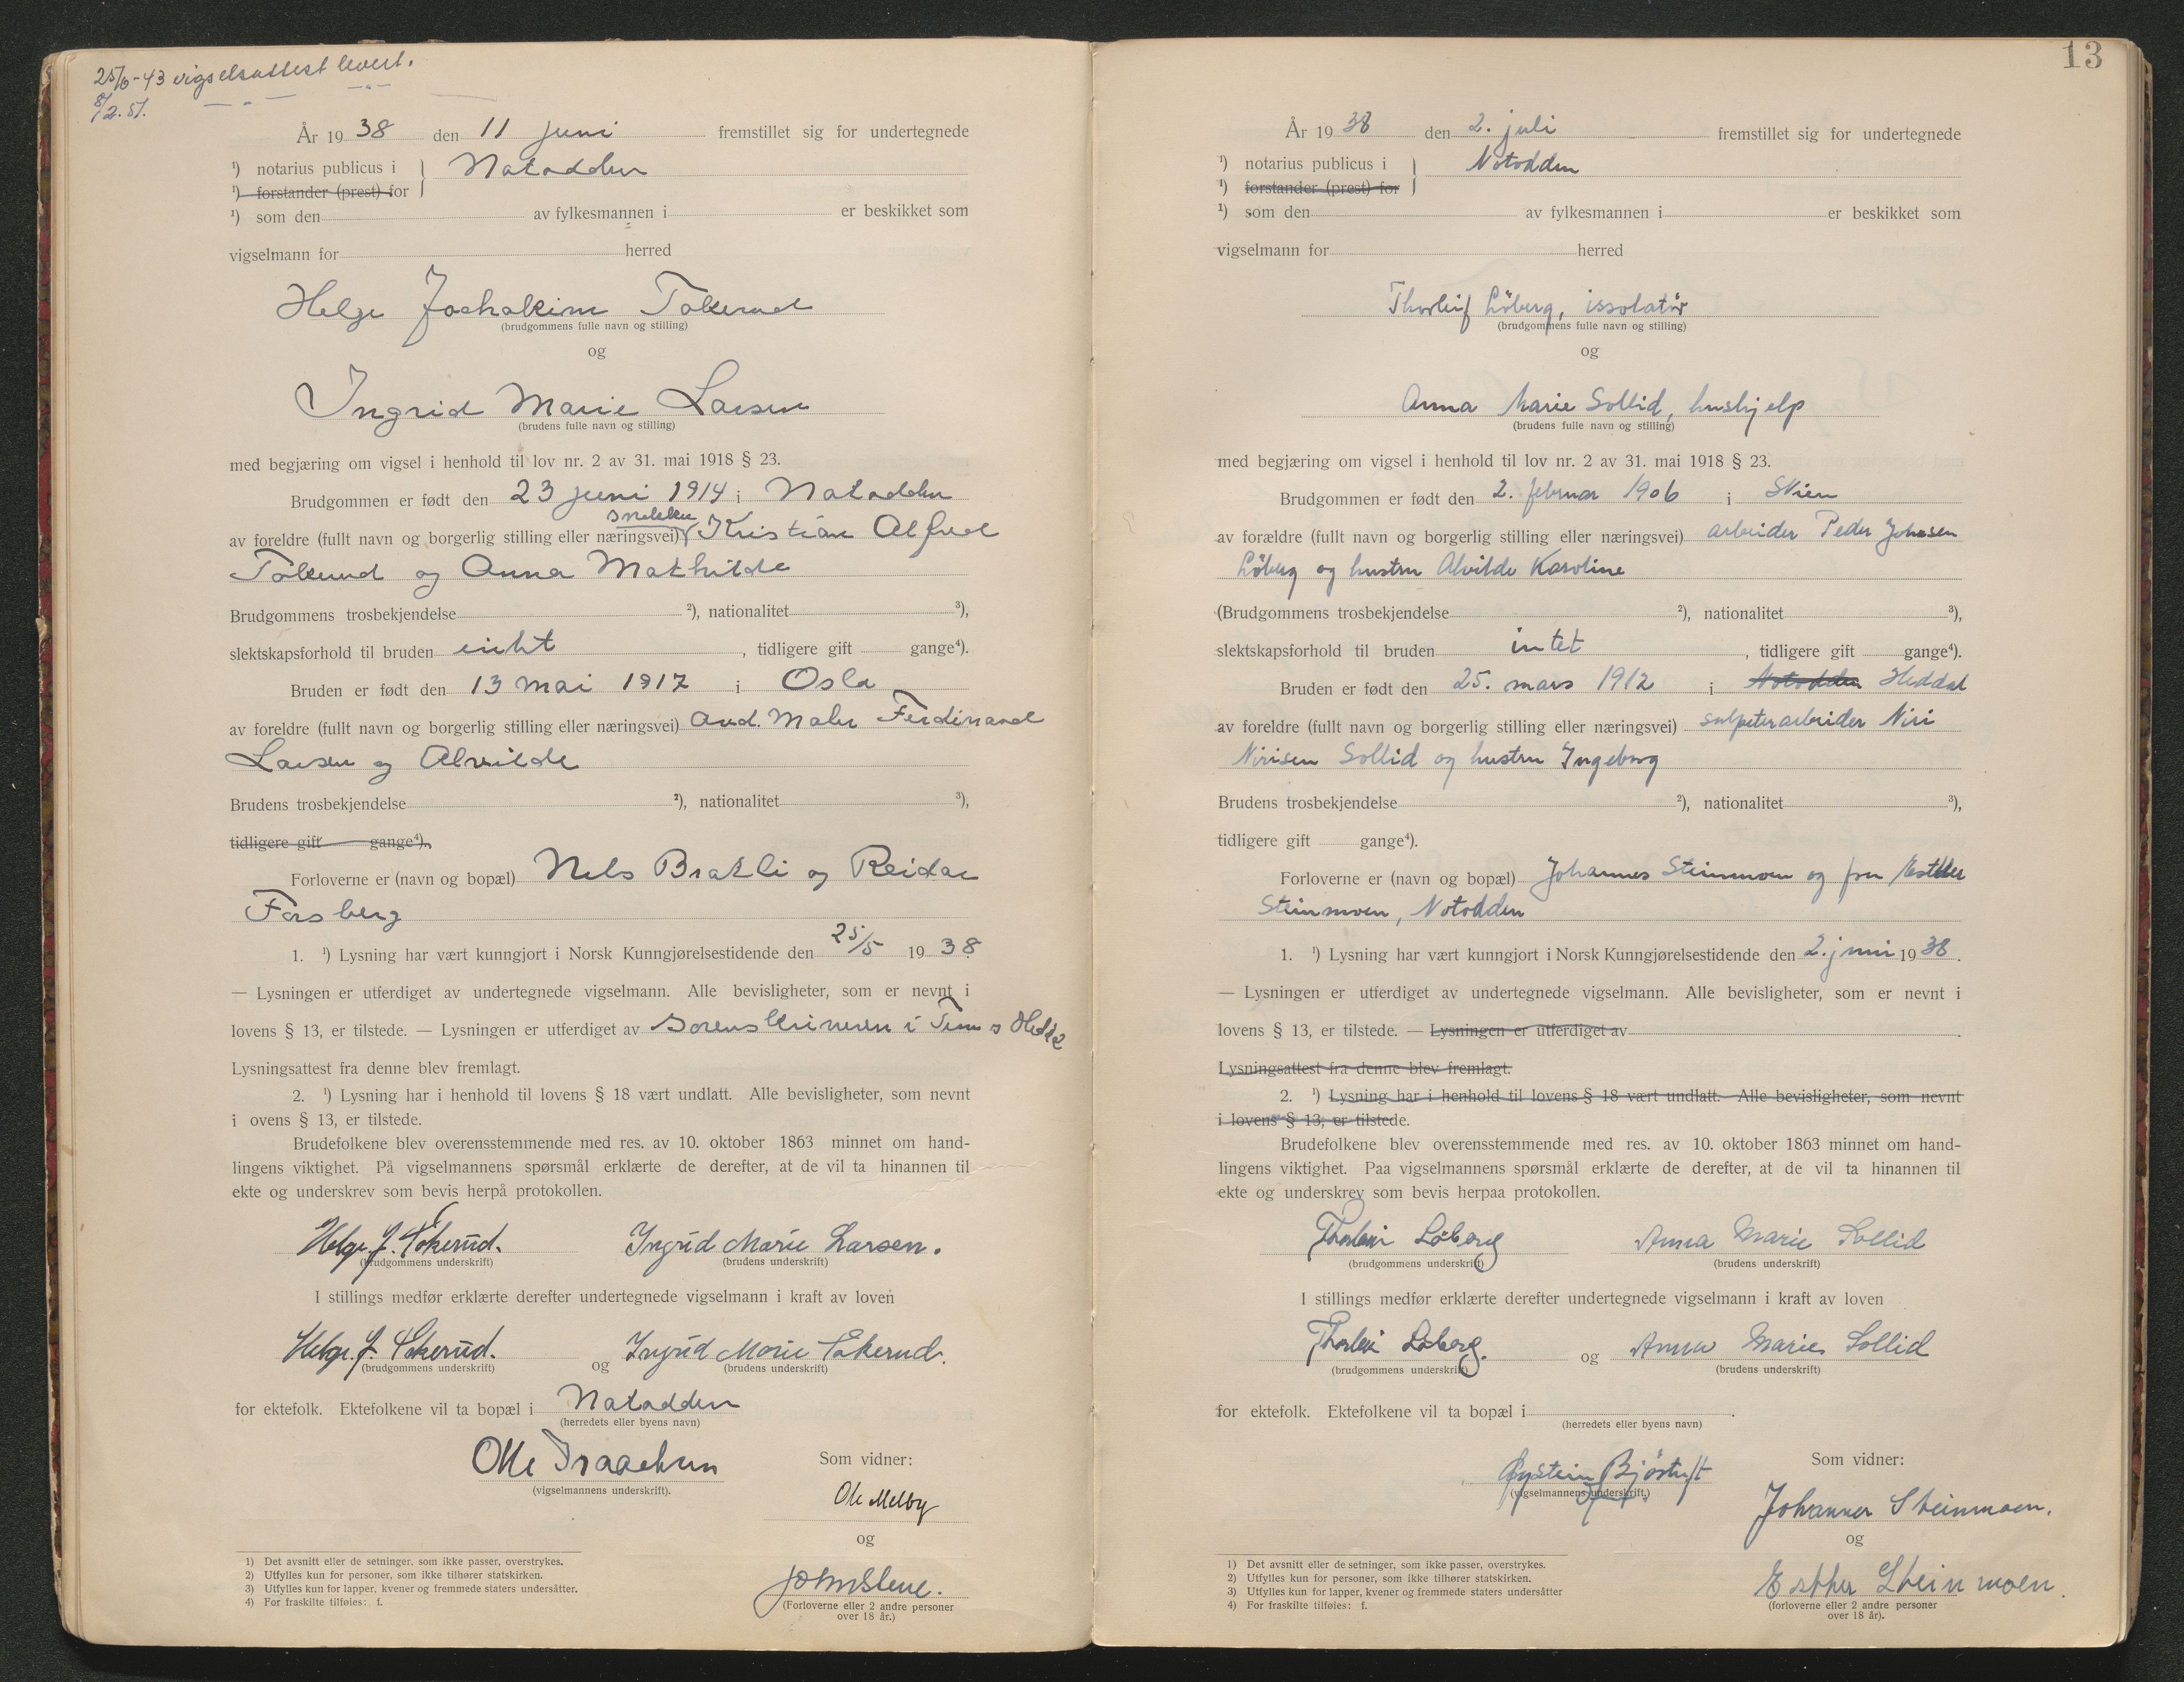 25/10-43 vigselsattest levert.
8/2.51. — " — — " —
År 19 38 den 11 juni fremstillet sig for undertegnede
¹) notarius publicus i } Notodden
¹) forstander (prest) for
¹) som den av fylkesmannen i er beskikket som
vigselmann for herred
Helge Joahakim Tokerud
(brudgommens fulle navn og stilling)
og
Ingrid Marie Larsen
(brudens fulle navn og stilling)
med begjæring om vigsel i henhold til lov nr. 2 av 31. mai 1918 § 23.
Brudgommen er født den 23 juni 1914 i Notodden
snekker
av foreldre (fullt navn og borgerlig stilling eller næringsvei) Kristian Alfred
Tokerud og Anna Mathilde
Brudgommens trosbekjendelse ²), nationalitet ³),
slektskapsforhold til bruden intet, tidligere gift gange⁴).
Bruden er født den 13 mai 1917 i Oslo
av foreldre (fullt navn og borgerlig stilling eller næringsvei) and. Maler Ferdinand
Larsen og Alvilde
Brudens trosbekjendelse ²), nationalitet ³),
tidligere gift gange⁴).
Forloverne er (navn og bopæl) Nels Brakli og Reidar
Forsberg
1. ¹) Lysning har vært kunngjort i Norsk Kunngjørelsestidende den 25/5 19 38
— Lysningen er utferdiget av undertegnede vigselmann. Alle bevisligheter, som er nevnt i
lovens § 13, er tilstede. — Lysningen er utferdiget av Sorenskriveren i Tinn o Hedda
Lysningsattest fra denne blev fremlagt.
2. ¹) Lysning har i henhold til lovens § 18 vært undlatt. Alle bevisligheter, som nevnt
i ovens § 13, er tilstede.
Brudefolkene blev overensstemmende med res. av 10. oktober 1863 minnet om hand-
lingens viktighet. På vigselmannens spørsmål erklærte de derefter, at de vil ta hinannen til
ekte og underskrev som bevis herpå protokollen.
Helge J. Tokerud. Ingrid Marie Larsen.
(brudgommens underskrift) (brudens underskrift)
I stillings medfør erklærte derefter undertegnede vigselmann i kraft av loven
Helge J. Tokerud. og Ingrid Marie Tokerud.
(brudgommens underskrift) (brudens underskrift)
for ektefolk. Ektefolkene vil ta bopæl i Notodden
(herredets eller byens navn)
(vigselmannens underskrift).
Som vidner:
Ole Melby
og
(Forloverne eller 2 andre personer
over 18 år.)
1) Det avsnitt eller de setninger, som ikke passer, overstrykes.
2) Utfylles kun for personer, som ikke tilhører statskirken.
3) Utfylles kun for lapper, kvener og fremmede staters undersåtter.
4) For fraskilte tilføies: f.
13
År 19 38 den 2. juli fremstillet sig for undertegnede
¹) notarius publicus i } Notodden
¹) forstander (prest) for
¹) som den av fylkesmannen i er beskikket som
vigselmann for herred
Thorleif Löberg, issolatör
(brudgommens fulle navn og stilling)
og
Anna Marie Sollid, hushjelp
(brudens fulle navn og stilling)
med begjæring om vigsel i henhold til lov nr. 2 av 31. mai 1918 § 23.
Brudgommen er født den 2. februar 1906 i Skien
av forældre (fullt navn og borgerlig stilling eller næringsvei) arbeider Peder Johnsen
Löberg og hustru Alvilde Karoline
(Brudgommens trosbekjendelse ²), nationalitet ³),
slektskapsforhold til bruden intet, tidligere gift gange⁴).
Bruden er født den 25. mars 1912 i Notodden Heddal
av foreldre (fullt navn og borgerlig stilling eller næringsvei) salpeterarbeider Niri
Nirisen Sollid og hustru Ingeborg
Brudens trosbekjendelse ²), nationalitet ³),
tidligere gift gange⁴).
Forloverne er (navn og bopæl) Johannes Steinmoen og fru Esther
Steinmoen, Notodden
1. ¹) Lysning har vært kunngjort i Norsk Kunngjørelsestidende den 2. juni 19 38.
— Lysningen er utferdiget av undertegnede vigselmann. Alle bevisligheter, som er nevnt i
lovens § 13, er tilstede. — Lysningen er utferdiget av
Lysningsattest fra denne blev fremlagt.
2. ¹) Lysning har i henhold til lovens § 18 vært undlatt. Alle bevisligheter, som nevnt
i lovens § 13, er tilstede.
Brudefolkene blev overensstemmende med res. av 10. oktober 1863 minnet om hand-
lingens viktighet. Paa vigselmannens spørsmål erklærte de derefter, at de vil ta hinannen til
ekte og underskrev som bevis herpaa protokollen.
Thorleif Løberg Anna Marie Sollid
(brudgommens underskrift) (brudens underskrift)
I stillings medfør erklærte derefter undertegnede vigselmann i kraft av loven
Thorleif Løberg. og Anna Marie Sollid
(brudgommens underskrift) (brudens underskrift)
for ektefolk. Ektefolkene vil ta bopæl i .
(herredets eller byens navn)
Øystein Bjørtuft
(vigselmannens underskrift.)
Som vidner:
Johannes Steinmoen.
og
Esther Steinmoen.
(forloverne eller 2 andre personer
over 18 år).
1) Det avsnitt eller de setninger, som ikke passer, overstrykes.
2) Utfylles kun for personer, som ikke tilhører statskirken.
3) Utfylles kun for lapper, kvener og fremmede staters undersåtter
4) For fraskilte tilføies: f.